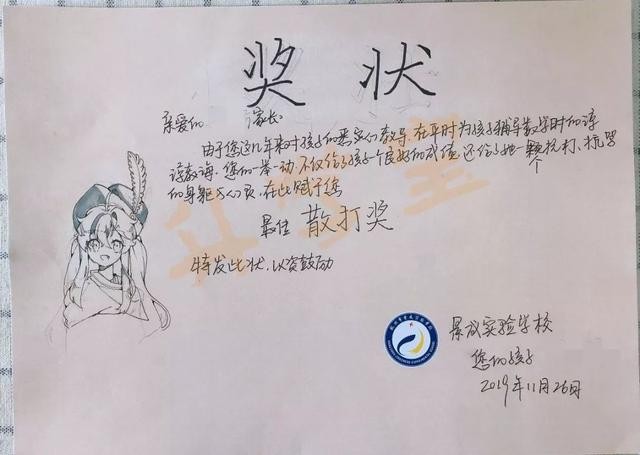 奖 状
亲爱的 家长:
由于您这几年来对孩子的悉心教导,在平时为孩子辅导数学时的谆
谆教诲,您的一举一动,不仅给了孩子一个良好的成绩,还给了她一颗抗打、抗骂
个
的身躯与心灵,在此赋予您
最佳 散打奖
特发此状,以资鼓励
景成实验学校
您的孩子
2019年11月26日